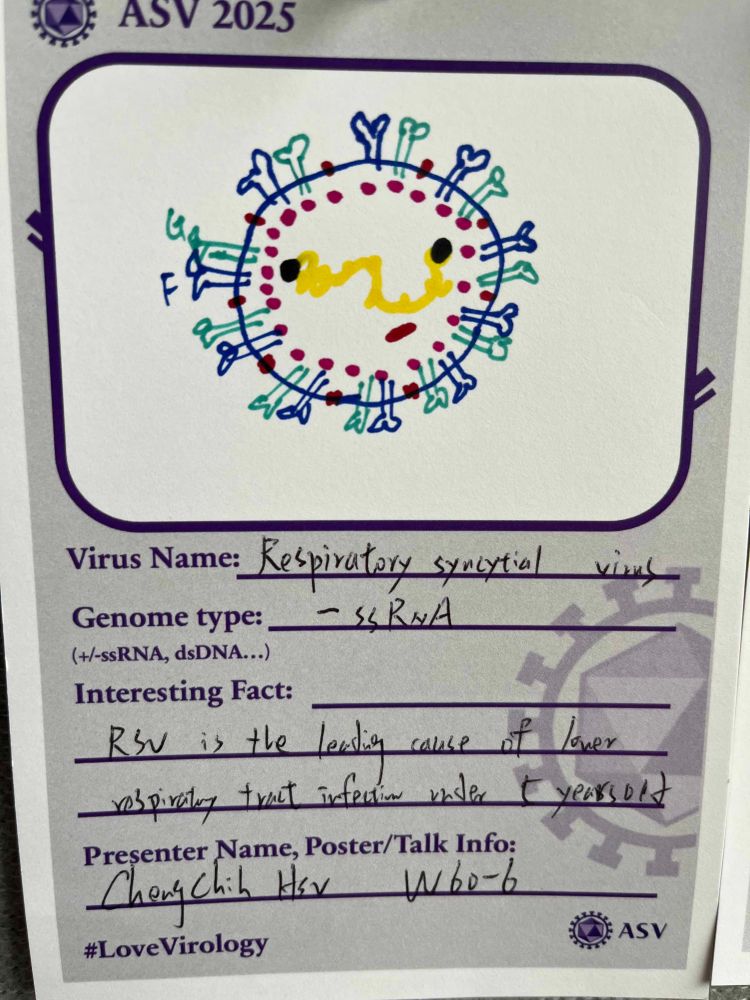 ASV 2025
G
F
Virus Name: Respiratory syncytial virus
Genome type: - ssRNA
(+/-ssRNA, dsDNA...)
Interesting Fact:
RSV is the leading cause of lower
respiratory tract infection under 5 years old
Presenter Name, Poster/Talk Info:
ChengChih Hsu W60-6
#LoveVirology
ASV